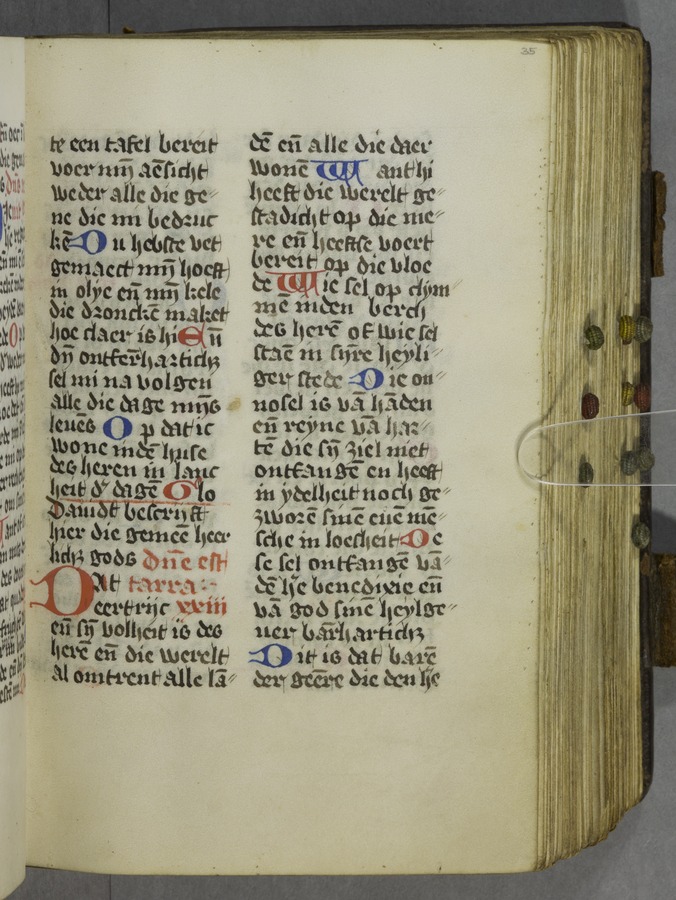 35
te een tafel bereit
voer mỹ aẽsicht
weder alle die ge⸗
ne die mi bedruc
kẽ Du hebste vet
gemaect mỹ hoeft
in olye eñ mỹ kele
die dronckẽ maket
hoe claer is hi Eñ
dỹ ontfẽrhartich3
sel mi na volgen
alle die dage mỹs
leuẽs Op dat ic
wone indẽ huse
des heren in lanc
heit dʼ dagẽ Glo
Dauidt bescrijft
hier die gemeẽ heer
lich3 gods Dñe est
Dat tarra
eertrijc xxiii
eñ sỹ volheit is des
herẽ eñ die werelt
al omtrent alle lã⸗
dẽ eñ alle die daer
wonẽ Want hi
heeft die werelt ge⸗
stadicht op die me⸗
re eñ heeftse voert
bereit op die vloe
de Wie sel op clym⸗
mẽ inden berch
des herẽ of wie sel
staẽ in sijre heyli⸗
ger stede Die on⸗
nosel is vã hãden
eñ reyne vã har⸗
tẽ die sỹ ziel niet
ontfangẽ en heeft
in ydelheit noch ge⸗
zworẽ sinẽ euẽ mẽ⸗
sche in loesheit De
se sel ontfangẽ vã⸗
dẽ he benedixie eñ
vã god sinẽ heylge⸗
uer bãrhartich3
Dit is dat barẽ
der geẽre die den he